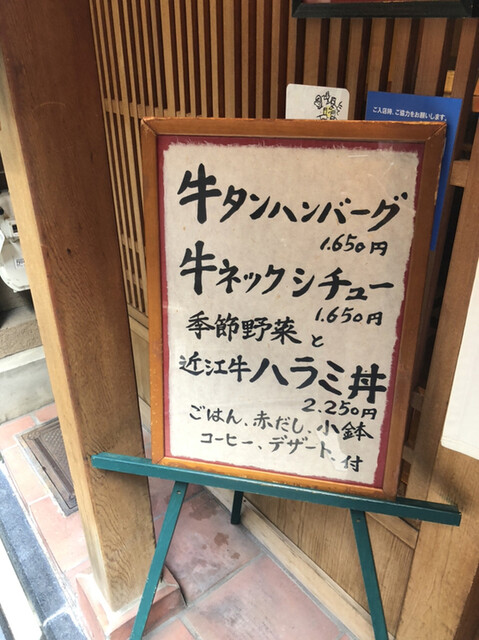 ご入店時、ご協力をお願いします。
牛タンハンバーグ
1.650円
牛ネックシチュー
1.650円
季節野菜と
近江牛ハラミ丼
2.250円
ごはん、赤だし、小鉢
コーヒー、デザート、付